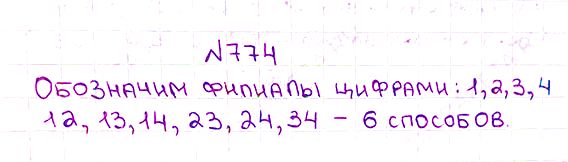 №774
Обозначим филиалы цифрами: 1, 2, 3, 4
12, 13, 14, 23, 24, 34 – 6 способов.